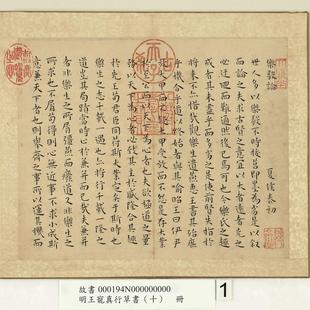 樂毅論
夏侯泰初
世人多以樂毅不時拔莒即墨為劣是以叙
而論之夫求古賢之意宜以大者遠者先之
必迂迴而難通然後已焉可也今樂氏之趣
或者其未盡乎而多劣之是使前賢失指於
將來不亦惜哉觀樂生遺燕惠王書其殆庶
乎機合乎道以終始者與其喻昭王曰伊尹
放大甲而不疑大甲受放而不怨是存大業
於至公而以天下為心者也夫欲極道之量
務以天下為心者必致其主於盛隆合其趣
於先王苟君臣同符斯大業定矣于斯時也
樂生之志千載一遇也亦將行千載一隆之
道豈其局蹟當時止於兼并而已哉夫兼并
者非樂生之所屑彊燕而廢道又非樂生之
所求也不屑苟得則心無近事不求小成斯
意兼天下者也則舉齊之事所以運其機而
故書 000194N000000000
明王寵真行草書（十） 冊
1